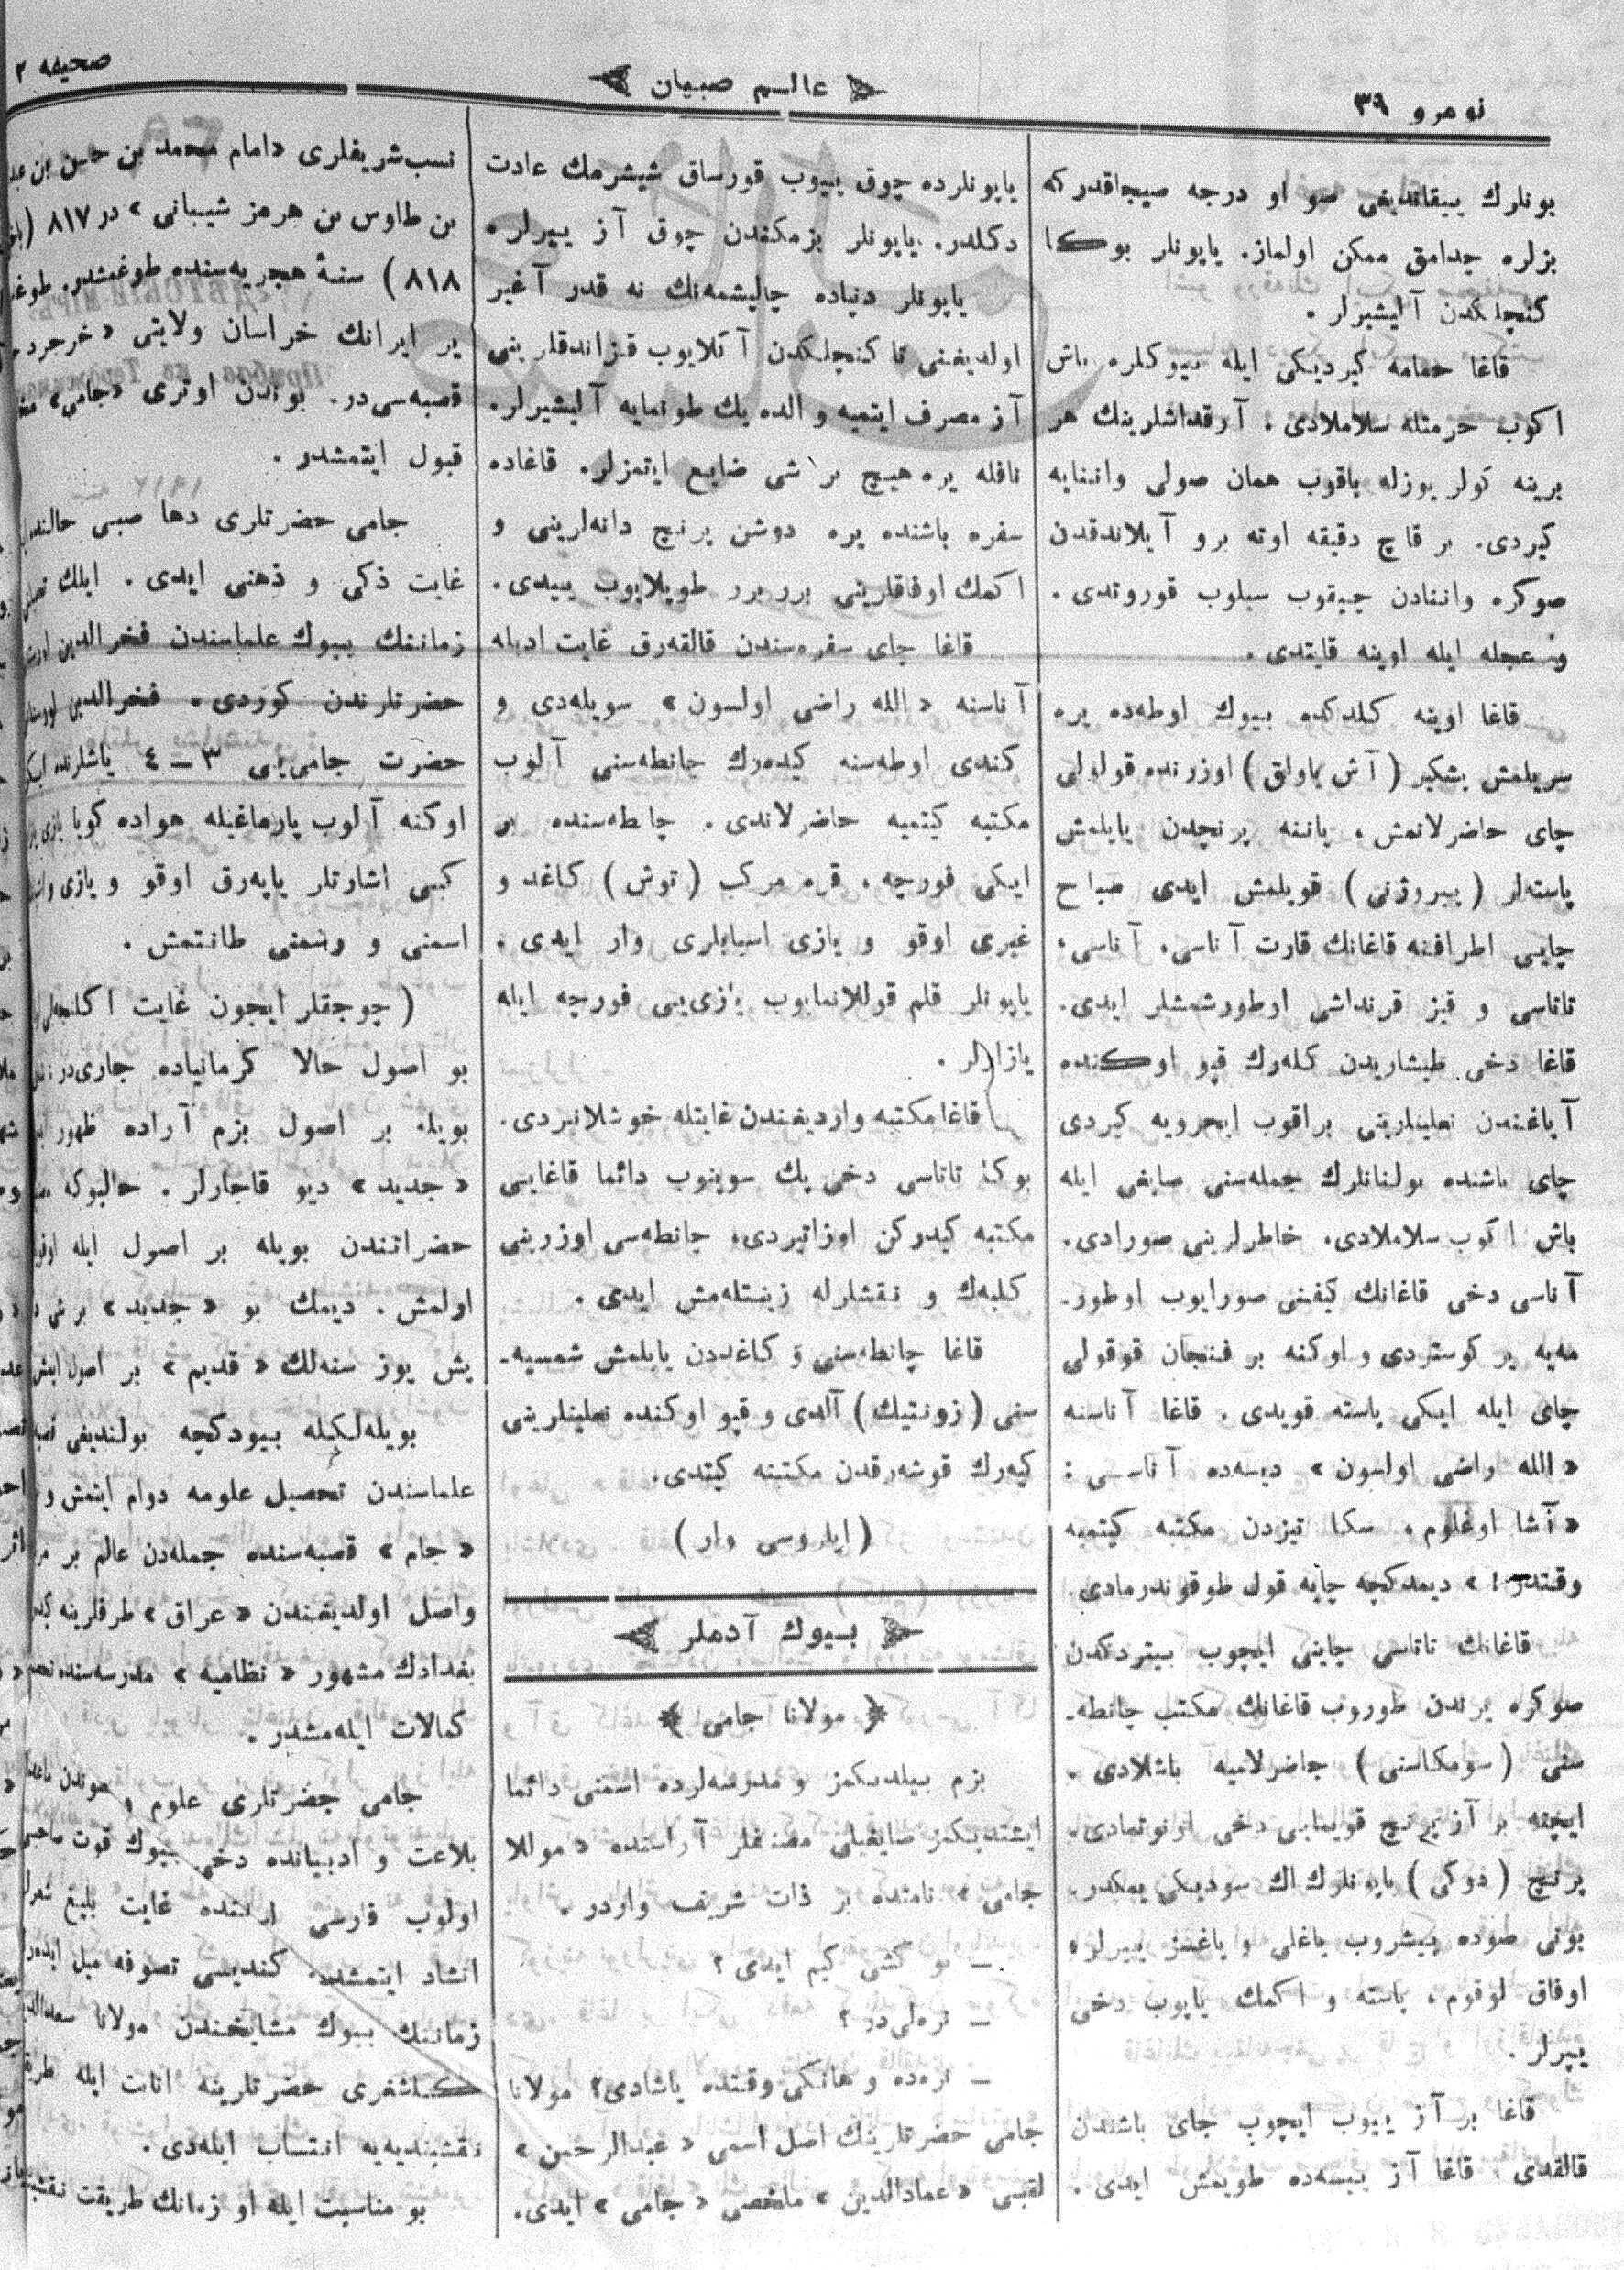 نومرو ٣٩
عالم صبيان
صحيفه ٢
بونلرك ييقانديغى صو او درجه صيجاقدركه
بزلره چدامق ممكن اولماز. ياپونلر بوكا
كنجلكدن آليشيرلر.
قاغا حمامه كيرديكى ايله بيوكلره باش
اكوب حرمتله سلاملادى. آرقداشلرينك هر
برينه كولر يوزله باقوب همان صولى واننايه
كيردى. بر قاچ دقيقه اوته برو آيلاندقدن
صوكره واننادن چيقوب سيلوب قوروندى.
و عجله ايله اوينه قايتدى.
قاغا اوينه كلدكده بيوك اوطه‌ده يره
سريلمش پشكير (آش ياولق) اوزرنده قوقولى
چاى حاضرلانمش، ياننه پرنچدن ياپلمش
پاسته‌لر (پيروژنى) قويلمش ايدى صباح
چايى اطرافنه قاغانك قارت آناسى، آناسى،
تاتاسى و قيز قرنداشى اوطورشمشلر ايدى.
قاغا دخى طيشاريدن كله‌رك قپو اوكنده
آياغندن نعلينلرينى براقوب ايچرويه كيردى
چاى باشنده بولنانلرك جمله‌سنى صايغى ايله
باش اكوب سلاملادى، خاطرلرينى صورادى.
آناسى دخى قاغانك كيفنى صورايوب اوطور-
مه‌يه ير كوستردى و اوكنه بر فنجان قوقولى
چاى ايله ايكى پاسته قويدى. قاغا آناسنه
«الله راضى اولسون» ديسه‌ده آناسى:
«آشا اوغلوم، سكا تيزدن مكتبه كيتميه
وقتدر!» ديمدكچه چايه قول طوقوندرمادى.
قاغانك تاتاسى چاينى ايچوب بيتردكدن
صوكره يرندن طوروب قاغانك مكتب چانطه-
سنى (سومكاسنى) حاضرلاميه باشلادى.
ايچنه بر آز پرنچ قويمايى دخى اونوتمادى.
پرنچ (دوكى) ياپونلرك اك سوديكى يمكدر.
بونى صوده پيشروب ياغلى و ياغسز ييرلر،
اوفاق لوقوم، پاسته و اكمك ياپوب دخى
ييرلر.
قاغا بر آز ييوب ايچوب چاى باشندن
قالقدى. قاغا آز ييسه‌ده طويمش ايدى.
ياپونلرده چوق ييوب قورساق شيشرمك عادت
دكلدر. ياپونلر بزمكندن چوق آز ييرلر.
ياپونلر دنياده چاليشمه‌نك نه قدر آغير
اولديغنى تا كنجلكدن آكلايوب قزاندقلرينى
آز مصرف ايتميه و الده يك طوتمايه آليشيرلر.
نافله يره هيچ بر شى ضايع ايتمزلر. قاغاده
سفره باشنده يره دوشن پرنچ دانه‌لرينى و
اكمك اوفاقلرينى برر برر طوپلايوب ييدى.
قاغا چاى سفره‌سندن قالقه‌رق غايت ادبله
آناسنه «الله راضى اولسون» سويله‌دى و
كندى اوطه‌سنه كيده‌رك چانطه‌سنى آلوب
مكتبه كيتميه حاضرلاندى. چانطه‌سنده بر
ايكى فورچه، قره مركب (توش) كاغد و
غيرى اوقو و يازى اسبابلرى وار ايدى.
ياپونلر قلم قوللانمايوب يازى‌يى فورچه ايله
يازارلر.
قاغا مكتبه وارديغندن غايتله خوشلانيردى.
بوكا تاتاسى دخى پك سوينوب دائما قاغايى
مكتبه كيدركن اوزاتيردى، چانطه‌سى اوزرينى
كلبه‌ك و نقشلرله زينتله‌مش ايدى.
قاغا چانطه‌سنى و كاغددن ياپلمش شمسيه-
سنى (زونتيك) آلدى و قپو اوكنده نعلينلرينى
كيه‌رك قوشه‌رقدن مكتبنه كيتدى.
(ايلروسى وار)
بيوك آدملر
مولانا جامى
بزم بيلديكمز و مدرسه‌لرده اسمنى دائما
ايشتديكمز صايغيلى مصنفلر آراسنده «موللا
جامى» نامنده بر ذات شريف واردر.
— بو كشى كيم ايدى؟
— نره‌لى‌در؟
— نره‌ده و هانكى وقتده ياشادى؟ مولانا
جامى حضرتلرينك اصل اسمى «عبدالرحمن»
لقبى «عمادالدين» مخلصى «جامى» ايدى.
نسب شريفلرى «امام محمد بن حسن بن
بن طاوس بن هرمز شيبانى» در ٨١٧
٨١٨) سنۀ هجريه‌سنده طوغمشدر.
ير ايرانك خراسان ولايتى «خرجرد
قصبه‌سى‌در. بوندن اوترى «جامى»
قبول ايتمشدر.
جامى حضرتلرى دها صبى حالنده
غايت ذكى و ذهنى ايدى. ايلك
زماننك بيوك علماسندن فخرالدين
حضرتلرندن كوردى. فخرالدين
حضرت جامى‌يى ٣ – ٤ ياشلرنده
اوكنه آلوب پارماغيله هواده كويا يازى
كبى اشارتلر ياپه‌رق اوقو و يازى
اسمنى و رسمنى طانتمش.
(چوجقلر ايچون غايت اكلنجه‌لى
بو اصول حالا كرمانياده جارى‌در.
بويله بر اصول بزم آراده ظهور
«جديد» ديو قاچارلر. حالبوكه
حضراتندن بويله بر اصول ايله
اولمش. ديمك بو «جديد» بر شى
بش يوز سنه‌لك «قديم» بر اصول ايمش
بويله‌لكيله بيودكچه بولنديغى
علماسندن تحصيل علومه دوام ايتمش و
«جام» قصبه‌سنده جمله‌دن عالم بر
واصل اولديغندن «عراق» طرفلرينه
بغدادك مشهور «نظاميه» مدرسه‌سنده
كمالات ايله‌مشدر.
جامى حضرتلرى علوم و
بلاغت و ادبياتده دخى بيوك قوت صاحبى
اولوب فارسى لسانده غايت بليغ
انشاد ايتمشدر. كنديسى تصوفه ميل
زماننك بيوك مشايخندن مولانا
كاشغرى حضرتلرينه انابت ايله
نقشبنديه‌يه انتساب ايله‌دى.
بو مناسبت ايله او زمانك طريقت